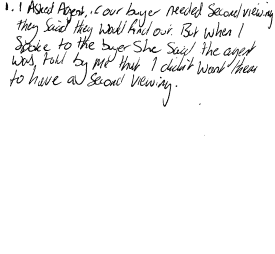 1. I Asked Agent, if our buyer needed Second viewing
they Said they would find our. But when I
Spoke to the buyer She Said the agent
was, told by me that I didn't want them
to have a Second viewing.